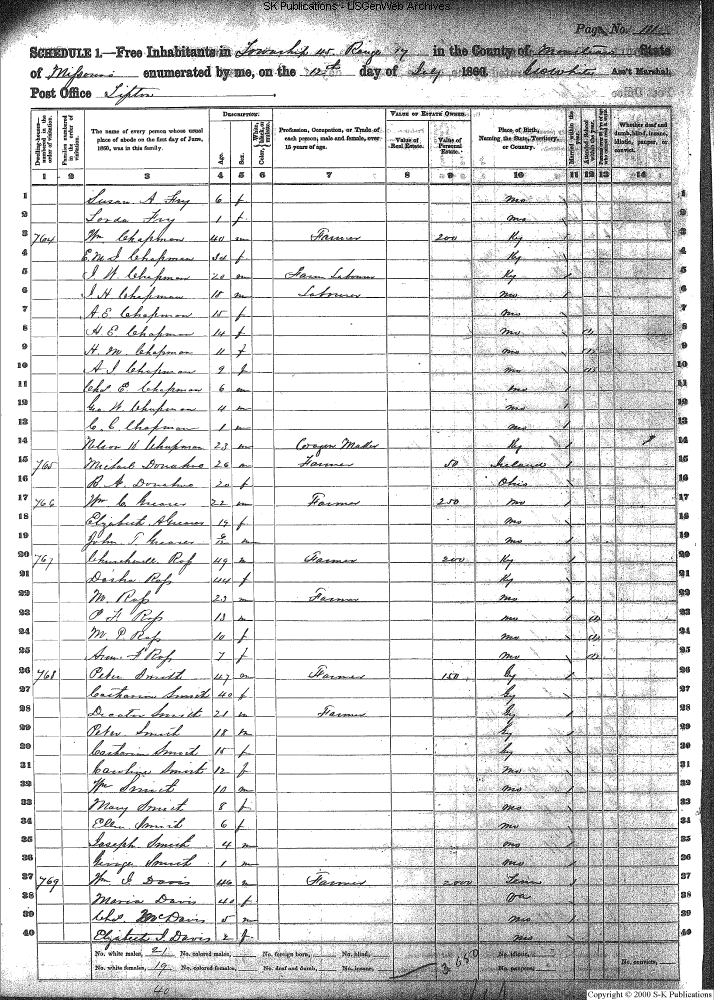 SK Publications - USGenWeb Archives
Page No. 111
SCHEDULE 1.—Free Inhabitants in Township 45 Range 17 in the County of Moniteau State
of Missouri enumerated by me, on the 12th day of July 1860. Ass't Marshal,
Post Office Tipton
Dwelling-houses—numbered in the order of visitation.
Families numbered in the order of visitation.
The name of every person whose usual place of abode on the first day of June, 1860, was in this family.
DESCRIPTION.
Age.
Sex.
Color, White, black, or mulatto.
Profession, Occupation, or Trade of each person, male and female, over 15 years of age.
VALUE OF ESTATE OWNED.
Value of Real Estate.
Value of Personal Estate.
Place of Birth, Naming the State, Territory, or Country.
Married within the year.
Attended School within the year.
Whether deaf and dumb, blind, insane, idiotic, pauper, or convict.
1 2 3 4 5 6 7 8 9 10 11 12 13 14
1 Susan A Fry 6 f Mo 1
2 Fry 1 f Mo 2
3 764 Wm Chapman 40 m Farmer 200 Ky 3
4 E. M. J Chapman 34 f Ky 4
5 J W Chapman 20 m Farm Labourer Ky 5
6 J H Chapman 18 m Labourer Mo 6
7 A. E. Chapman 15 f Mo 7
8 H. E. Chapman 14 f Mo 8
9 H. M. Chapman 11 f Mo 9
10 A J Chapman 9 f Mo 10
11 Chs E. Chapman 6 m Mo 11
12 Geo W Chapman 4 m Mo 12
13 C. C. Chapman 1 m Mo 13
14 Nelson H Chapman 23 m Maker Ky 14
15 765 Michael Donahue 26 m Farmer 50 Ireland 15
16 R. A. Donahue 20 f Ohio 16
17 766 Wm C Greaves 22 m Farmer 250 Mo 17
18 Elizabeth A Greaves 19 f Mo 18
19 John T. Greaves m Mo 19
20 767 Churchwell Ross 49 m Farmer 200 Ky 20
21 Ross 44 f Ky 21
22 M. Ross 23 m Farmer Mo 22
23 Ross 13 m Mo 23
24 M. P Ross 10 f Mo 24
25 Ross 7 f Mo 25
26 768 Peter Smith 47 m Farmer 150 Ky 26
27 Catharine Smith 40 f Ky 27
28 Smith 21 m Farmer Ky 28
29 Peter Smith 18 m Ky 29
30 Catharin Smith 15 f Ky 30
31 Caroline Smith 12 f Mo 31
32 Wm Smith 10 m Mo 32
33 Mary Smith 8 f Mo 33
34 Ellen Smith 6 f Mo 34
35 Joseph Smith 4 m Mo 35
36 George Smith 1 m Mo 36
37 769 Wm J. Davis 46 m Farmer 2000 Tenn 37
38 Maria Davis 40 f Va 38
39 Chs McDavis 5 m Mo 39
40 Elizabeth J. Davis 2 f Mo 40
No. white males, 21 No. colored males, No. foreign born, No. blind, No. idiotic,
No. white females, 19 No. colored females, No. deaf and dumb, No. insane, No. paupers, No. convicts,
40
Copyright © 2000 S-K Publications